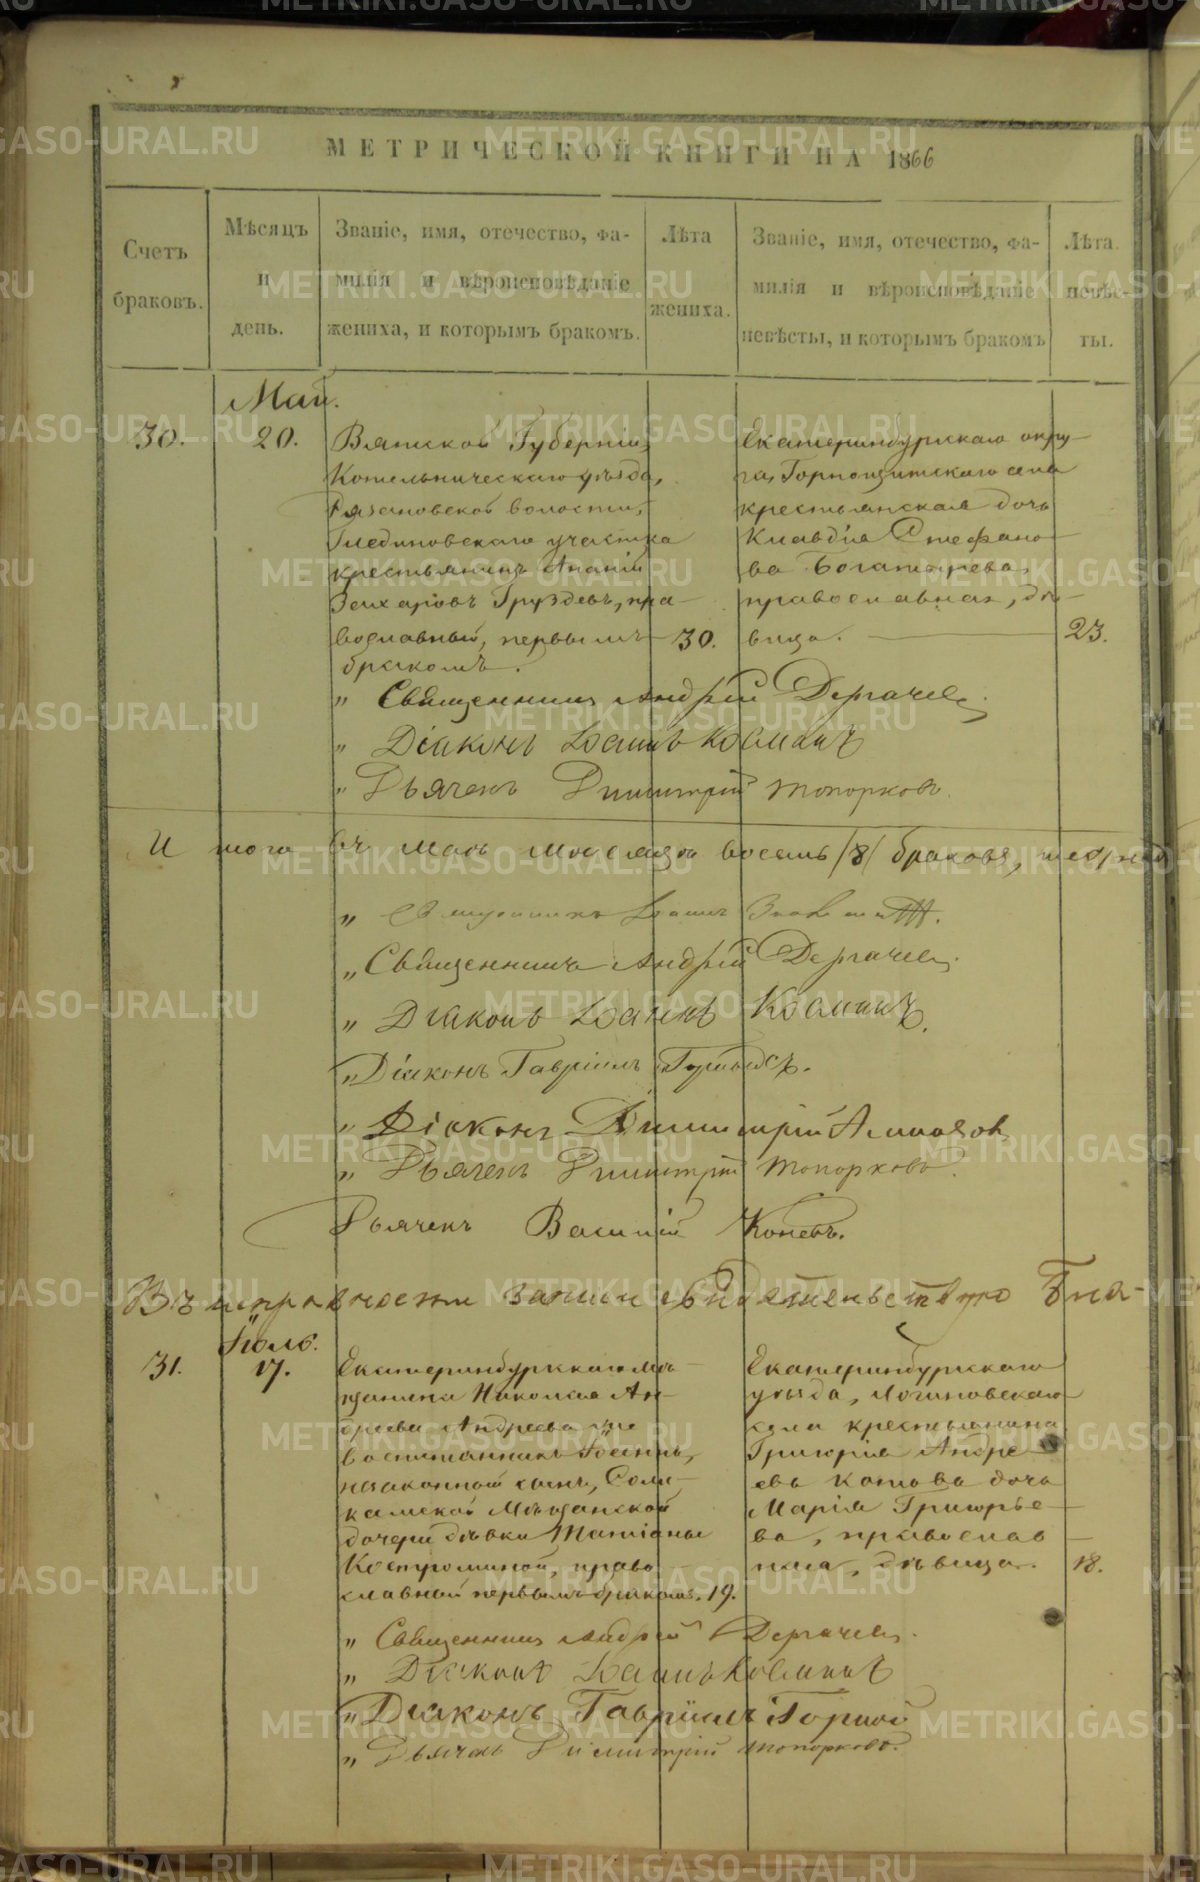 МЕТРИЧЕСКОЙ КНИГИ НА 1866
Счетъ браковъ.
Мѣсяцъ и день.
Званіе, имя, отечество, фа-
милія и вѣроисповѣданіе
жениха, и которымъ бракомъ.
Лѣта жениха.
Званіе, имя, отечество, фа-
милія и вѣроисповѣданіе
невѣсты, и которымъ бракомъ
Лѣта невѣс-
ты.
Май.
30. 20.
Вятской Губерніи,
Котельническаго уѣзда,
волости,
участка
крестьянинъ Ананій
Захаровъ Груздевъ, пра-
вославный, первымъ
бракомъ.
30.
Екатеринбурскаго окру-
га, Горнощитскаго села
крестьянская дочь
Клавдія Стефано-
ва Богатырева,
православная, дѣ-
вица.
23.
" Священникъ Андрей Дергачев.
" Діаконъ Іоаннъ Космин
" Дьячекъ Димитрій Топорковъ.
Итого въ маѣ месяцѣ восемь /8/ браковъ,
" Іоаннъ
" Священникъ Андрей Дергачев.
" Діаконъ Іоаннъ Космин.
" Діаконъ Гавріилъ
" Діаконъ Димитрій
" Дьячекъ Димитрій Топорковъ.
Дьячекъ Василій Коневъ.
Въ исправности записи свидѣтельствую
Іюль.
31. 17.
Екатеринбурскаго мѣ-
щанина Николая Ан-
дреева Андреева же
воспитанникъ
незаконный сынъ, Соли-
камской Мѣщанской
дочери дѣвки Татіаны
Костроминой, право-
славный первымъ бракомъ.
19.
Екатеринбурскаго
уѣзда, Логиновскаго
села крестьянина
Григорія Андре-
ева Котова дочь
Марія Григорье-
ва, православ-
ная, дѣвица.
18.
" Священникъ Андрей Дергачев.
" Діаконъ Іоаннъ Космин
" Діаконъ Гавріилъ
" Дьячекъ Димитрій Топорковъ.
METRIKI.GASO-URAL.RU